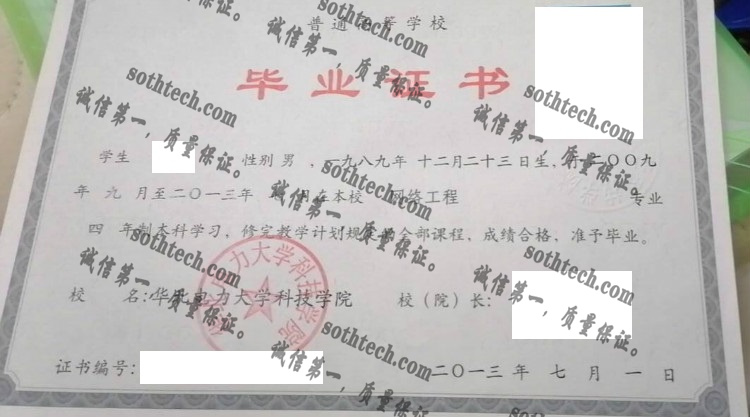 普通高等学校
毕业证书
学生 性别 男 ，一九八九年 十二月二十三日生，于二〇〇九
年 九 月至二〇一三年 月在本校 网络工程 专业
四 年制本科学习，修完教学计划规定的全部课程，成绩合格，准予毕业。
校 名：华北电力大学科技学院 校（院）长：
证书编号： 二〇一三年 七 月 一 日
sothtech.com
诚信第一，质量保证。
sothtech.com
诚信第一，质量保证。
sothtech.com
诚信第一，质量保证。
sothtech.com
诚信第一，质量保证。
sothtech.com
诚信第一，质量保证。
sothtech.com
诚信第一，质量保证。
sothtech.com
诚信第一，质量保证。